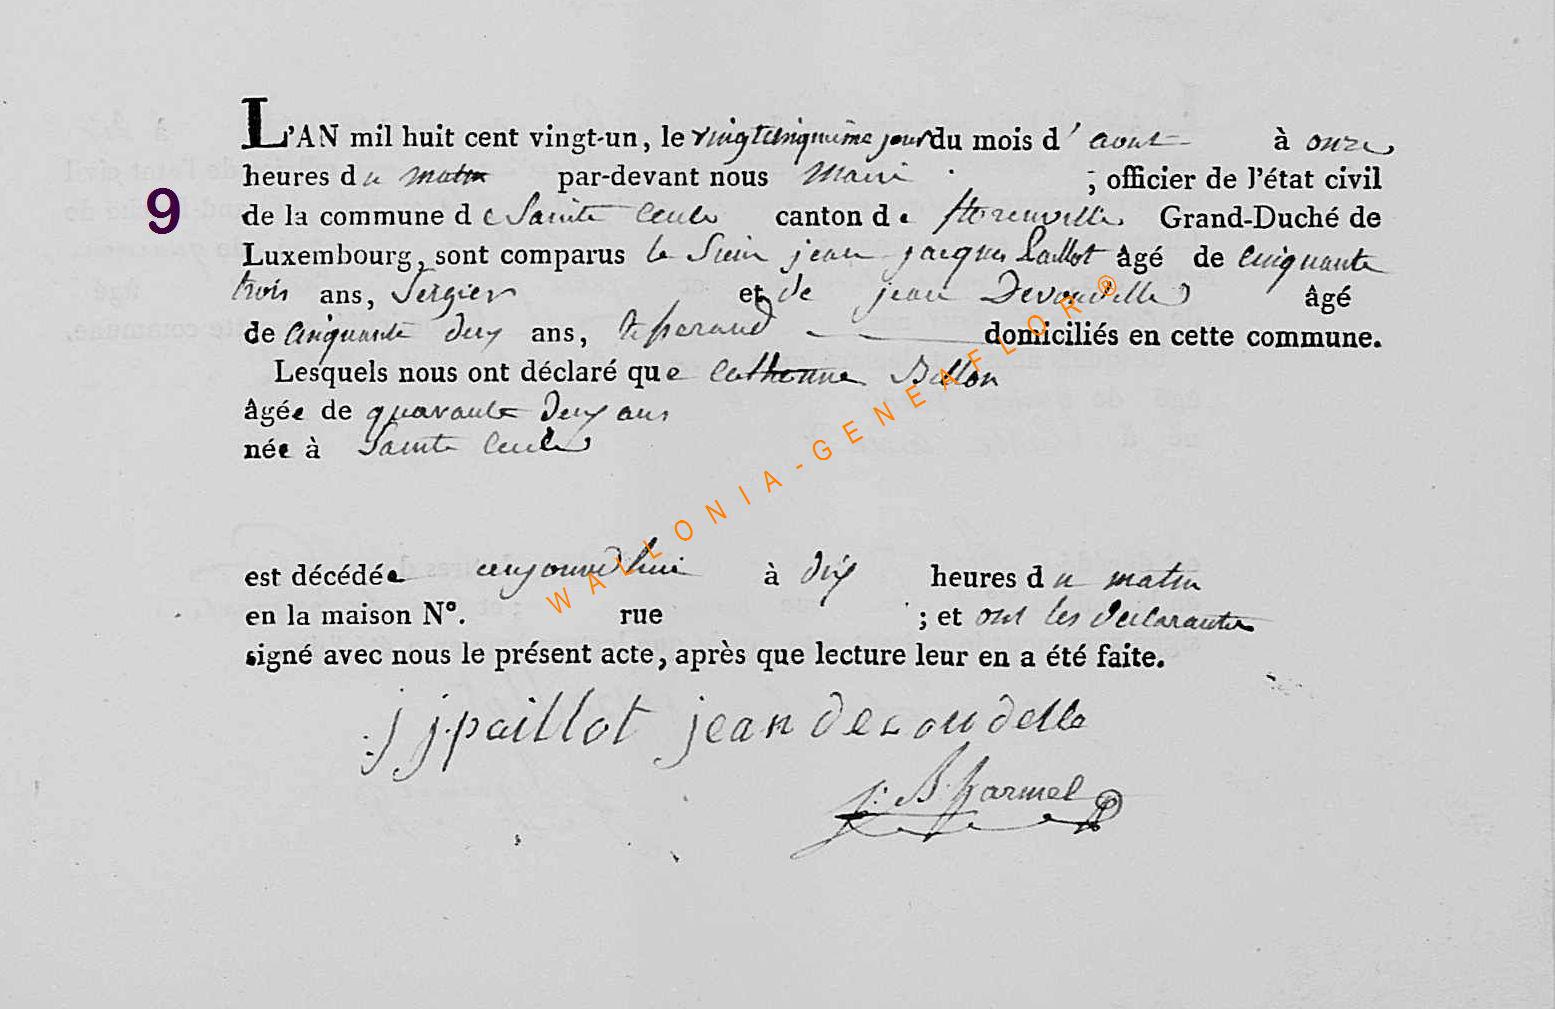 L'AN mil huit cent vingt-un, le vingtcinquieme jour du mois d'aout à onze
heures du matin par-devant nous Maire ; officier de l'état civil
9
de la commune de Sainte Cecile canton de florenville Grand-Duché de
Luxembourg, sont comparus le Sieur jean jacques Paillot âgé de Cinquante
trois ans, Sergier et de jean âgé
de Cinquante deux ans, domiciliés en cette commune.
Lesquels nous ont déclaré que Catherinne Billon
âgée de quarante deux ans
née à Sainte Cecile
est décédée aujourd'hui à dix heures du matin
en la maison N°. rue ; et ont les declarants
signé avec nous le présent acte, après que lecture leur en a été faite.
j j paillot jean
j: B. harmel
WALLONIA-GENEAFLOR®